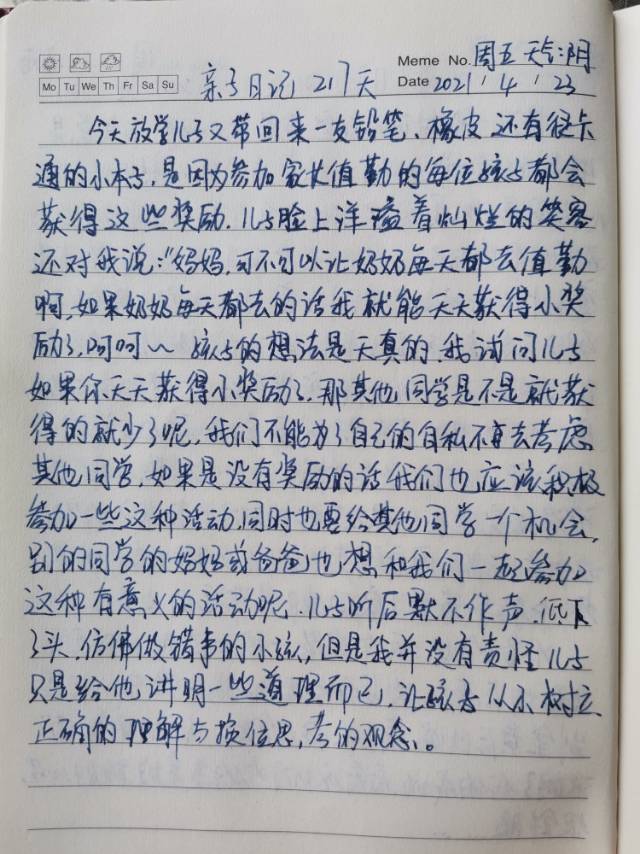 Meme No. 周五 天气:阴
Mo Tu We Th Fr Sa Su
亲子日记 217天
Date 2021 / 4 / 23
今天放学儿子又带回来一支铅笔、橡皮还有很卡
通的小本子,是因为参加家长值勤的每位孩子都会
获得这些奖励.儿子脸上洋溢着灿烂的笑容
还对我说:"妈妈,可不可以让奶奶每天都去值勤
啊,如果奶奶每天都去的话我就能天天获得小奖
励了,呵呵~ 孩子的想法是天真的.我试问儿子
如果你天天获得小奖励了.那其他同学是不是就获
得的就少了呢.我们不能为了自己的自私不再去考虑
其他同学,如果是没有奖励的话我们也应该积极
参加一些这种活动,同时也要给其他同学一个机会,
别的同学的妈妈或爸爸也想和我们一起参加
这种有意义的活动呢.儿子听后默不作声.低下
了头.仿佛做错事的小孩,但是我并没有责怪儿子
只是给他讲明一些道理而已.让孩子从小树立
正确的理解与换位思,考的观念。